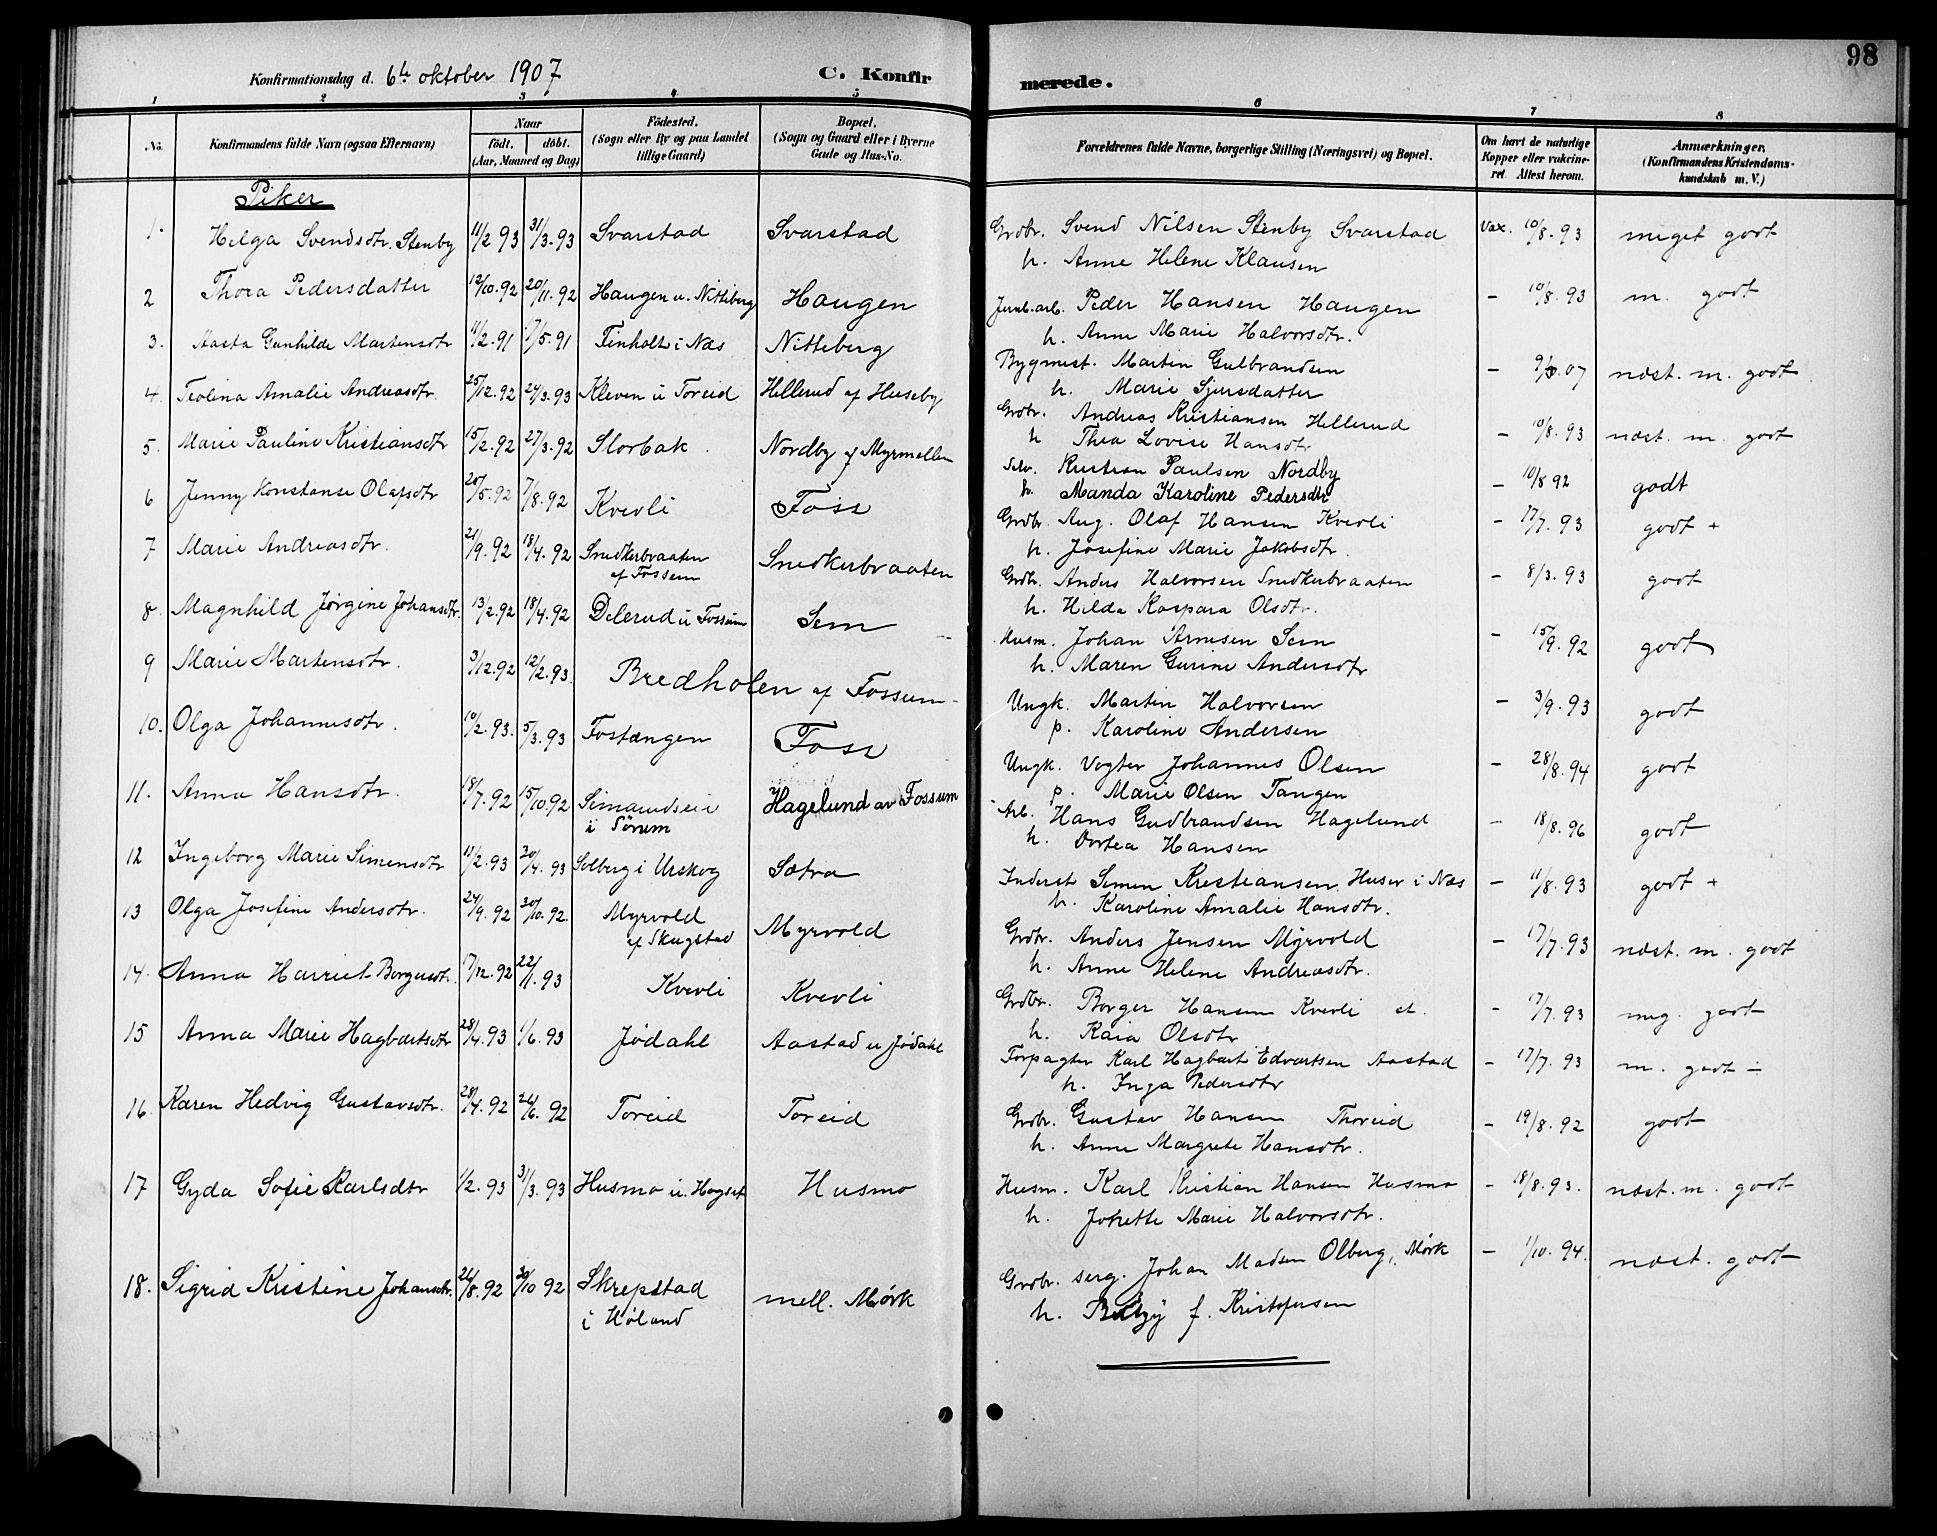 98
Konfirmationsdag d. 6te oktober 1907 C. Konfirmerede.
1 2 3 4 5 6 7 8
No. Konfirmandens fulde Navn (ogsaa Efternavn) Naar født. døbt. (Aar, Maaned og Dag) Fødested. (Sogn eller By og paa Landet tillige Gaard) Bopæl. (Sogn og Gaard eller i Byerne Gade og Hus-No. Forældrenes fulde Navne, borgerlige Stilling (Næringsvei) og Bopæl. Om havt de naturlige Kopper eller vakcineret. Attest herom. Anmærkninger. (Konfirmandens Kristendomskundskab m. V.)
Piker
1. Helga Svendsdtr. Stenby 11/2 93 31/3. 93 Svarstad Svarstad Grdbr. Svend Nilsen Stenby Svarstad Vax. 10/8. 93 meget godt
h. Anne Helene Klausen
2 Thora Pedersdatter 12/10. 92 20/11. 92 Haugen u. Nitteberg Haugen Jernb.arb. Peder Hansen Haugen - 10/8. 93 m. godt
h. Anne Marie Halvorsdtr.
3. Aasta Gunhilde Martensdtr 11/2. 91 17/5. 91 Finholt i Næs Nitteberg Bygmest. Martin Gulbrandsen - 07 næst. m. godt
h. Marie Sjursdatter
4. Teolina Amalie Andreasdtr. 25/12. 92 24/3. 93 Kleven u Toreid Hellerud af Huseby Grdbr. Andreas Kristiansen Hellerud - 10/8. 93 næst. m. godt
h Thea Lovise Hansdtr
5. Marie Pauline Kristiansdtr 15/2. 92 27/3. 92 Slorbak. Nordby af Myrmellen Selv. Kristian Paulsen Nordby - 10/8 92 godt
h. Manda Karoline Pedersdtr
6 Jenny Konstanse Olafsdtr 20/5. 92 7/8. 92 Kverli Foss Grdbr. Aug. Olaf Hansen Kverli - 17/7. 93 godt +
h. Josefine Marie Jakobsdtr.
7 Marie Andreasdtr. 21/9. 92 18/4. 92 Snedkerbraaten af Fossum Snedkerbraaten Grdbr. Anders Halvorsen Snedkerbraaten - 8/3. 93 godt
h. Hilda Kaspara Olsdtr.
8. Magnhild Jørgine Johansdtr. 13/2. 92 18/4. 92 Delerud u Fossum Sem Husm. Johan Arnesen Sem - 15/9. 92 godt
h. Maren Gurine Andersdtr
9 Marie Martensdtr. 3/12. 92 12/2. 93. Bredholen af Fossum - Ungk. Martin Halvorsen - 3/9. 93 godt
p. Karoline Andersen
10. Olga Johannesdtr. 10/2. 93. 5/3. 93 Fostængen Foss Ungk. Vogter Johannes Olsen - 28/8. 94 godt
p. Marie Olsen Tangen
11. Anna Hansdtr. 18/7. 92 15/10. 92 i Sørum Hagelund av Fossum Arb. Hans Gudbrandsen Hagelund - 18/8. 96 godt
h. Dortea Hansen
12 Ingeborg Marie Simensdtr 11/2. 93 20/4. 93 Solberg i Urskog Sætra Inderst Simen Kristiansen Huser i Næs - 11/8. 93 godt +
h. Karoline Amalie Hansdtr.
13 Olga Josefine Andersdtr. 24/9. 92 30/10. 92. Myrvold af Skugstad Myrvold Grdbr. Anders Jensen Myrvold - 17/7. 93 næst. m. godt
h. Anne Helene Andreasdtr.
14. Anna Harriet Borgersdtr. 17/12. 92 22/1. 93 Kverli Kverli Grdbr. Borger Hansen Kverli et. - 17/7. 93 meg. godt
h. Kaia Olsdtr
15 Anna Marie Hagbartsdtr 28/4. 93 1/6. 93 Jødahl Aastad u Jødahl Forpagter Karl Hagbart Edvartsen Aastad - 17/7. 93 m. godt ÷
h. Inga Pedersdtr
16. Karen Hedvig Gustavsdtr. 28/4. 92 26/6. 92 Toreid Toreid Grdbr. Gustav Hansen Thoreid - 19/8. 92 godt
h. Anne Margrete Hansdtr.
17 Gyda Sofie Karlsdtr 1/2. 93 3/3. 93 Husmo u. Hogset Husmo Husm. Karl Kristian Hansen Husmo - 18/8. 93. næst. m. godt
h. Johette Marie Halvorsdtr.
18. Sigrid Kristine Johansdtr. 26/8. 92 30/10 92 Skrepstad i Høland mell. Mørk Grdbr. serg. Johan Madsen Olberg, Mørk - 1/10. 94. næst. godt
h. f. Kristofersen